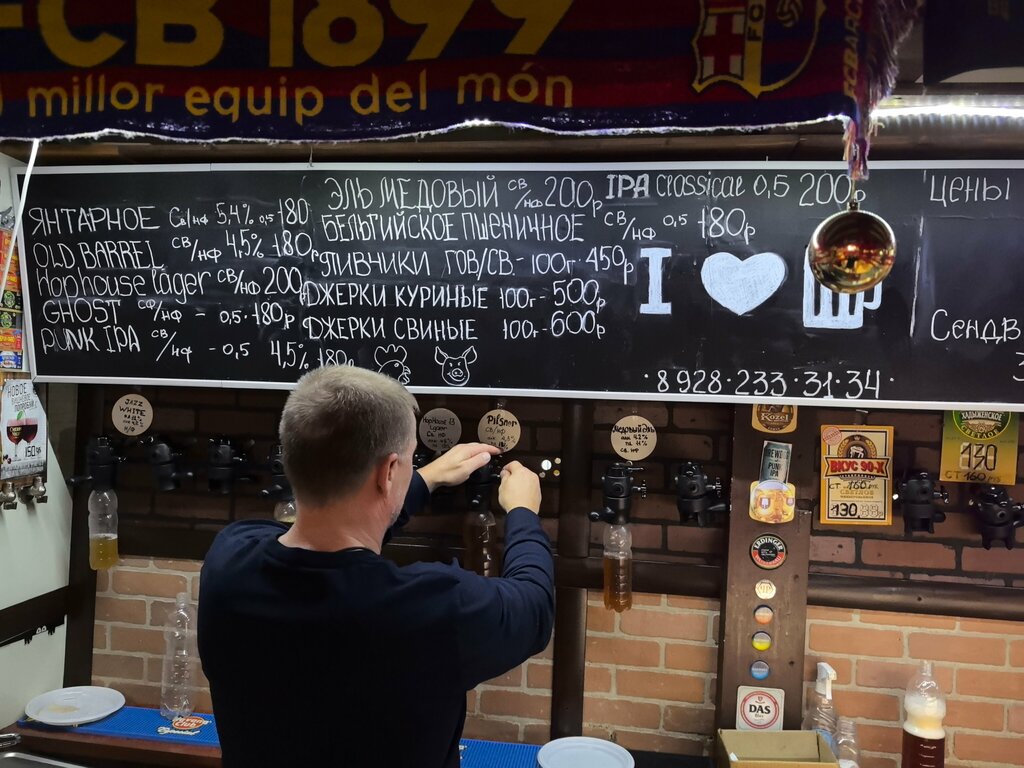 FCB 1899
millor equip del món
FCB
FCBARC
ЯНТАРНОЕ Св/нф 5.4% 0,5 180
OLD BARREL св/нф 4,5% 180р
Hophouse lager св/нф 200р
GHOST св/нф - 0,5 - 180р
PUNK IPA св/нф - 0,5 4,5% 180р
ЭЛЬ МЕДОВЫЙ св/нф 200р
БЕЛЬГИЙСКОЕ ПШЕНИЧНОЕ св/нф 0,5 180р
ПИВЧИКИ ГОВ/СВ. - 100г 450р
ДЖЕРКИ КУРИНЫЕ 100г - 500р
ДЖЕРКИ СВИНЫЕ 100г - 600р
IPA classical 0,5 200р
I
8 928 - 233 - 31 - 34
ЦЕНЫ
Сендв
JAZZ
WHITE
НОВОЕ
150
Hophouse 13
Lager
Pilsner
св/нф
Медовый Эль
Kozel
PUNK
IPA
ВКУС 90-Х
СТ 160 РУБ
СВЕТЛОЕ
130
ХАДЫЖЕНСКОЕ
СВЕТЛОЕ
130
СТ 160 РУБ
ERDINGER
DAS